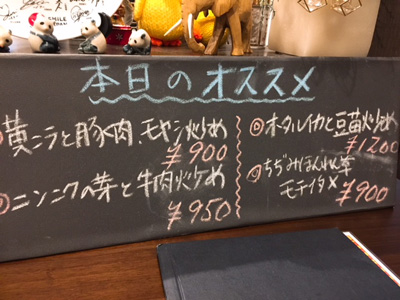 本日のオススメ
黄ニラと豚肉、モヤシ炒め
¥900
ニンニクの芽と牛肉炒め
¥950
◎ホタルイカと豆苗炒め
¥1200
◎ちぢみほうれん草
モチイタメ
¥900